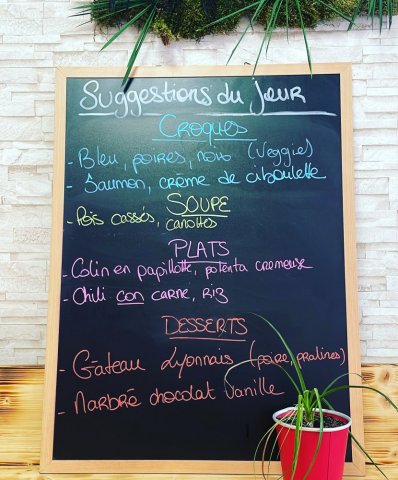 Suggestions du jour
CROQUES
- Bleu, poires, noix (Veggies)
- Saumon, crème de ciboulette
SOUPE
- Pois cassés, carottes
PLATS
- Colin en papillotte, polenta crémeuse
- Chili con carne, RIZ
DESSERTS
- Gâteau Lyonnais (poire, pralines)
- Marbré chocolat Vanille